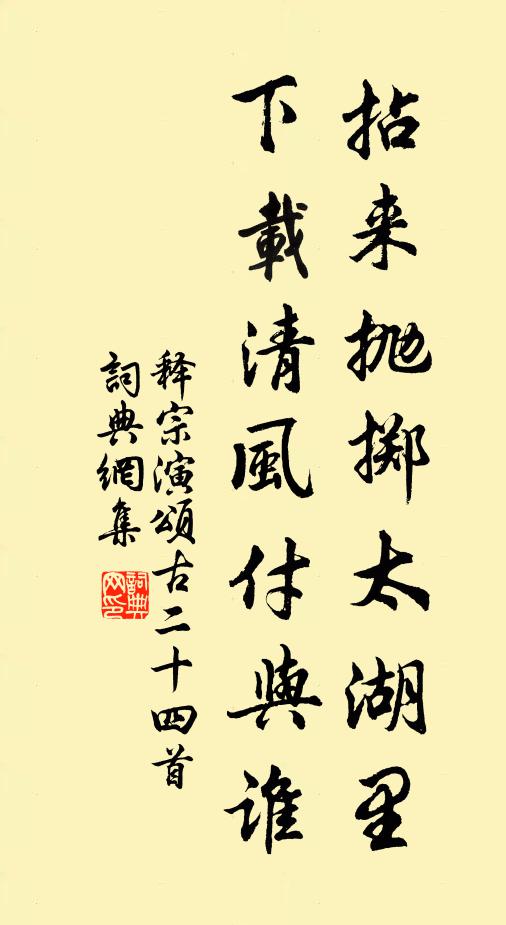 拈来抛掷太湖里
下載清風付與誰
释宗演頌古二十四首
詞典網集
詞典网印